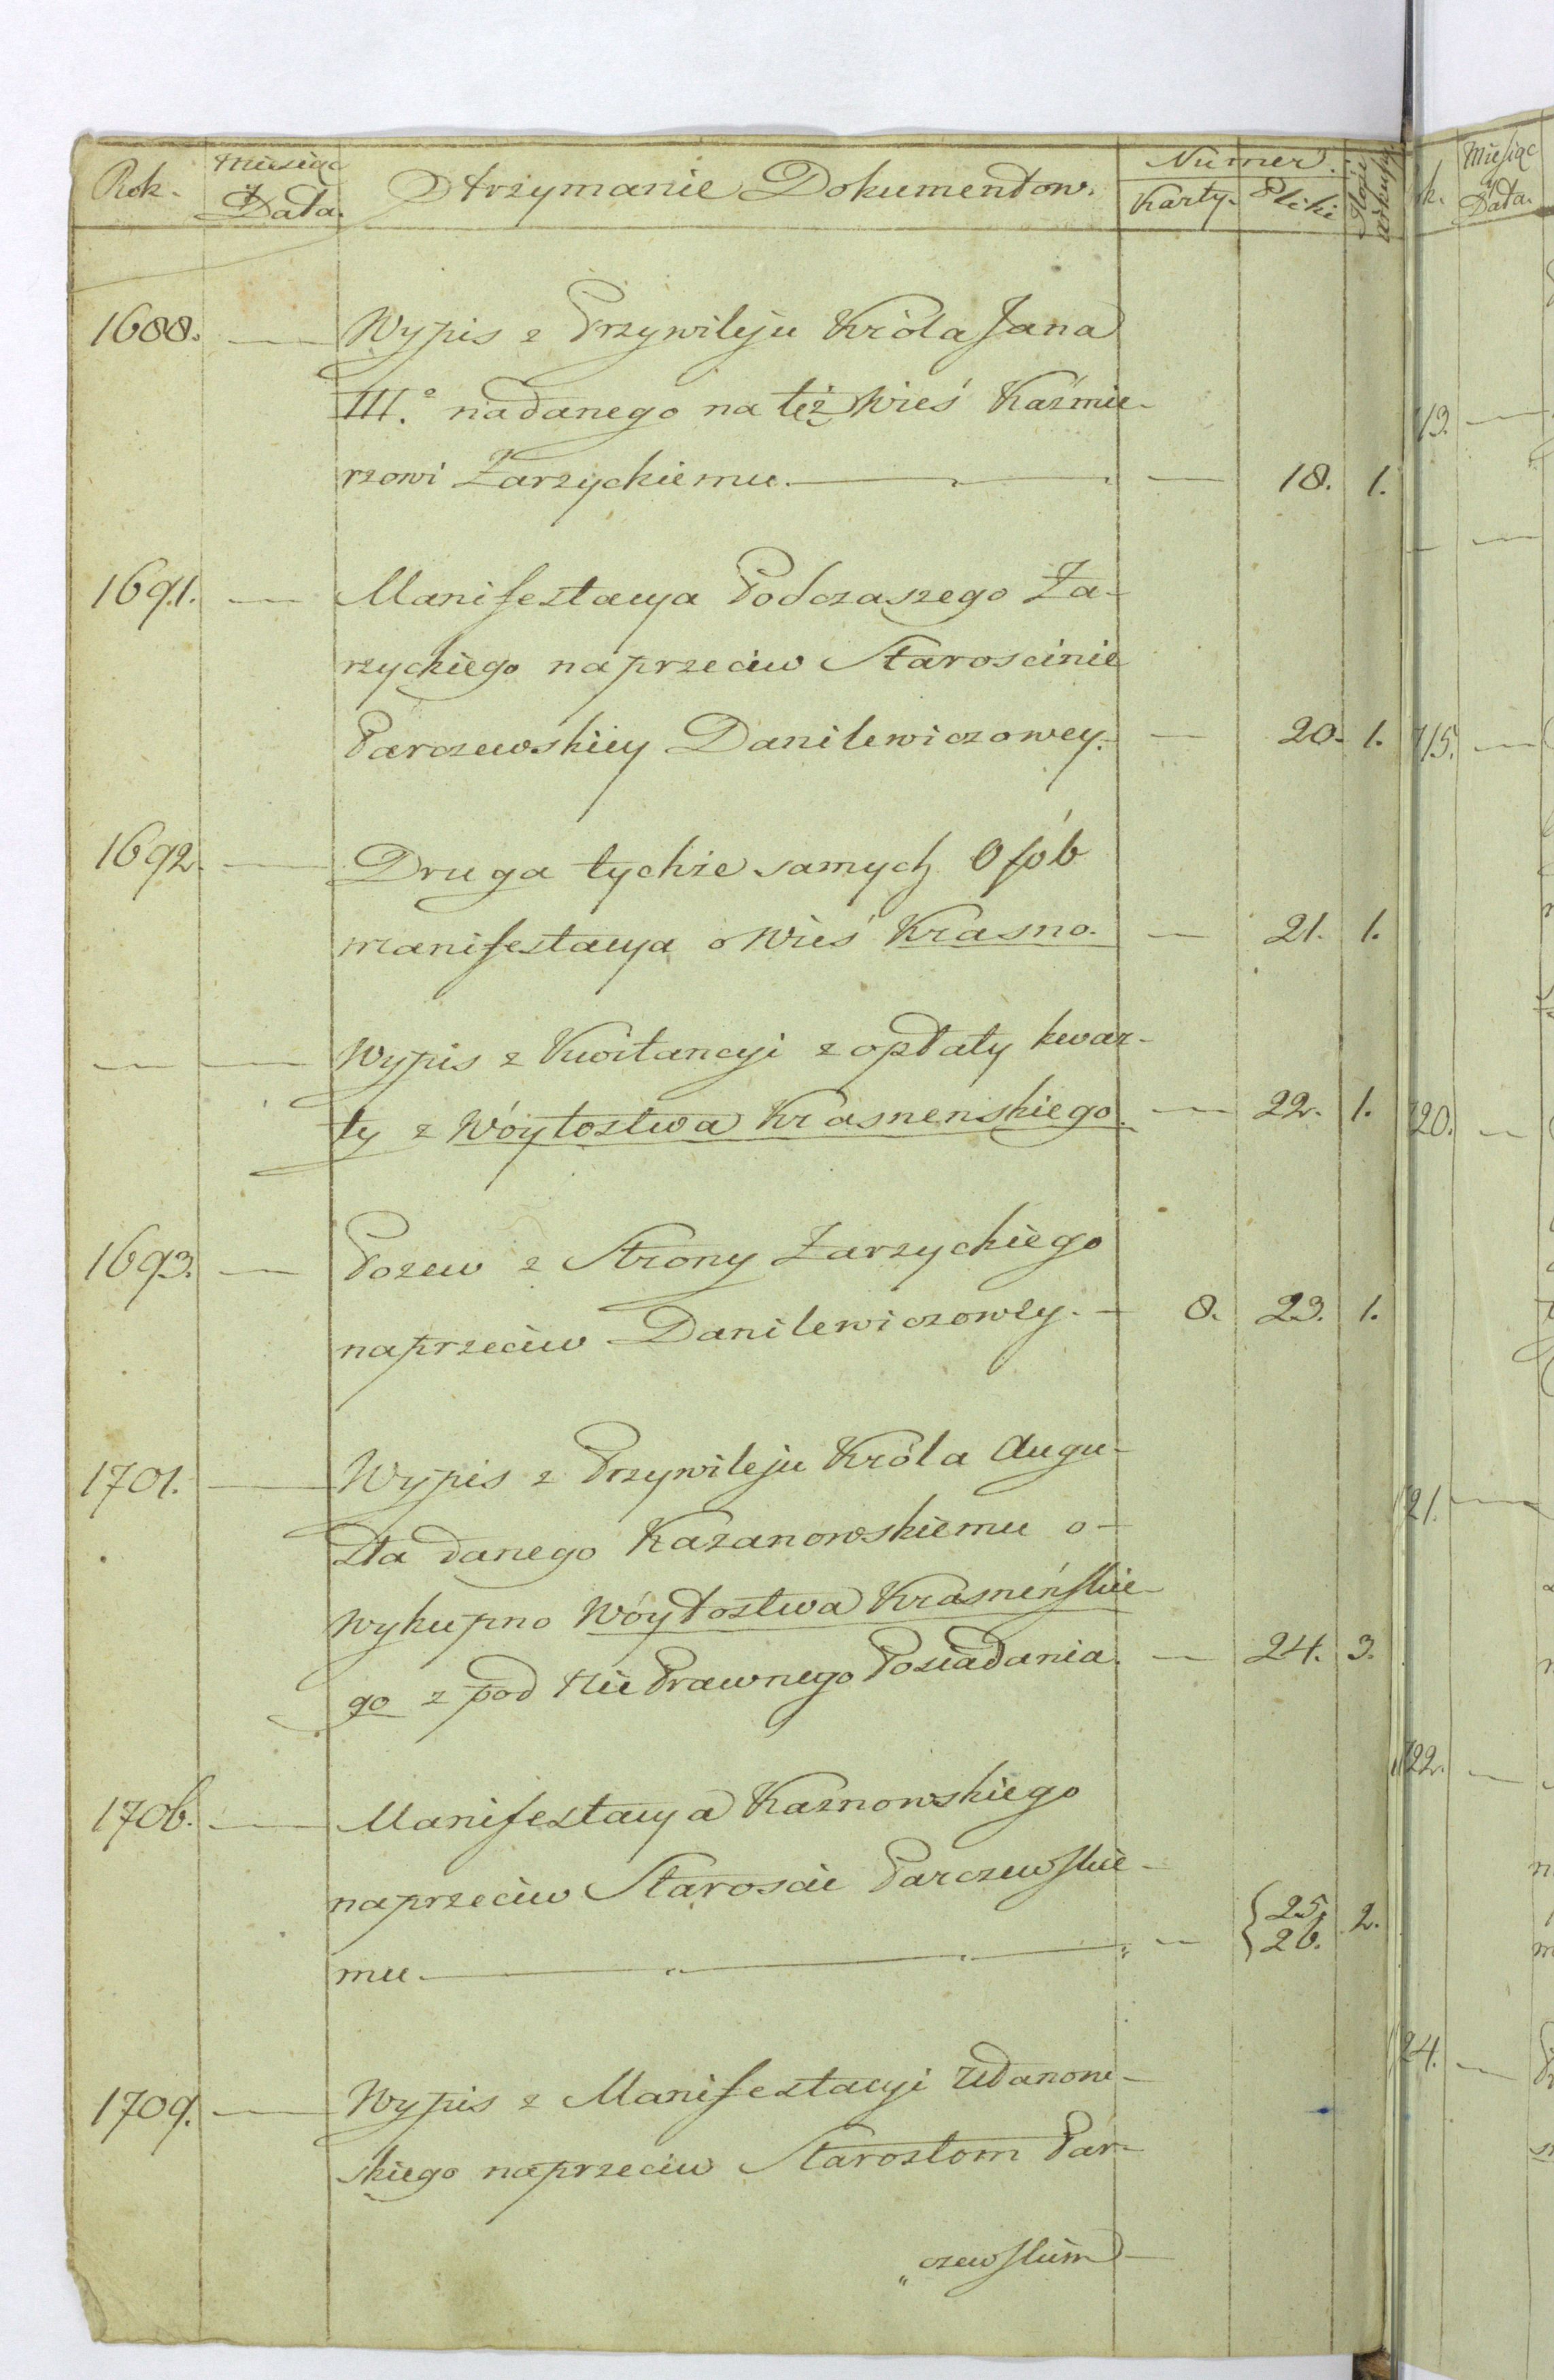 Rok. Miesiąc y Data. Otrzymanie Dokumentow. Numer.
Karty. Pliki Ilość arkuszy
1688. — Wypis z Przywileju Króla Jana
III.° nadanego na też Wieś Kaźmie-
rzowi Zarzyckiemu. — 18. 1.
1691. — Manifestacya Podczaszego Za-
rzyckiego naprzeciw Starościnie
Parczewskiey Danilewiczowey. — 20. 1.
1692. — Druga tychże samych Osób
manifestacya o Wieś Krasno. — 21. 1.
— — Wypis z Kwitancyi z opłaty kwar-
ty z Wóytostwa Krasnenskiego. — 22. 1.
1693. — Pozew z Strony Zarzyckiego
naprzeciw Danilewiczowey. — 8. 23. 1.
1701. — Wypis z Przywileju Króla Augu-
sta danego Kazanowskiemu o-
wykupno Wóytostwa Krasnieńskie-
go z pod Nie Prawnego Posiadania. — 24. 3.
1706. — Manifestacya Kaznowskiego
naprzeciw Staroscie Parczewskie-
mu. — { 25. 26. 2.
1709. — Wypis z Manifestacyi
skiego naprzeciw Starostom Par-
„czewskim —
k. Miesiąc y Data.
13. —
15. —
20. —
21. —
22. —
24. —